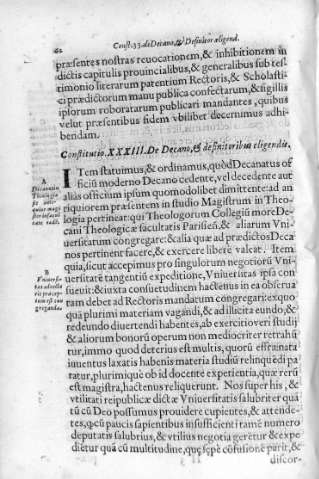 62 Const. 33. de Decano, & Definitor. eligend.
præsentes nostras reuocationem, & inhibitionem in
dictis capitulis prouincialibus, & generalibus sub tes
timonio literarum patentium Rectoris, & Scholasti-
ci prædictorum manu publica confectarum, & sigillis
ipsorum roboratarum publicari mandantes, quibus
velut præsentibus fidem vbilibet decernimus adhi-
bendam.
Constitutio. XXXIII. De Decano, & definitoribus eligendis.
A
Decanatus
Theologiæ
ITem statuimus, & ordinamus, quòd Decanatus of
ficiũ moderno Decano cedente, vel decedente aut
aliàs officium ipsum quomodolibet dimittente: ad an
tiquiorem præsentem in studio Magistrum in Theo-
logia pertineat: qui Theologorum Collegiũ more De-
cani Theologicæ facultatis Parisieñ. & aliarum Vni-
uersitatum congregare: & alia quæ ad prædictos Deca
nos pertinent facere, & exercere liberè valeat. Item
quia, sicut accepimus pro singulorum negotiorũ Vni-
uersitatẽ tangentiũ expeditione, Vniuersitas ipsa con
B
Vniuersi-
sueuit: & iuxta consuetudinem hactenus in ea obserua
tam debet ad Rectoris mandatum congregari: exquo
quia plurimi materiam vagandi, & ad illicita eundo, &
redeundo diuertendi habentes, ab exercitio veri studij
& aliorum bonorũ operum non mediocriter retrahũ
tur, immo quod deterius est multis, quorũ effrænata
iuuentus laxatis habenis materia studiũ relinquẽdi pa
tatur, plurimi quæ ob id docente experientia, quæ rerũ
est magistra, hactenus reliquerunt. Nos super his, &
vtilitati reipublicæ dictæ Vniuersitatis salubriter quã
tũ cũ Deo possumus prouidere cupientes, & attende-
tes, qd cũ paucis sapientibus insufficienti tamẽ numero
deputatis salubriùs, & vtiliùs negotia geretur & expe
dietur quã cũ multitudine, quę sępè cõfusionẽ parit, &
discor-